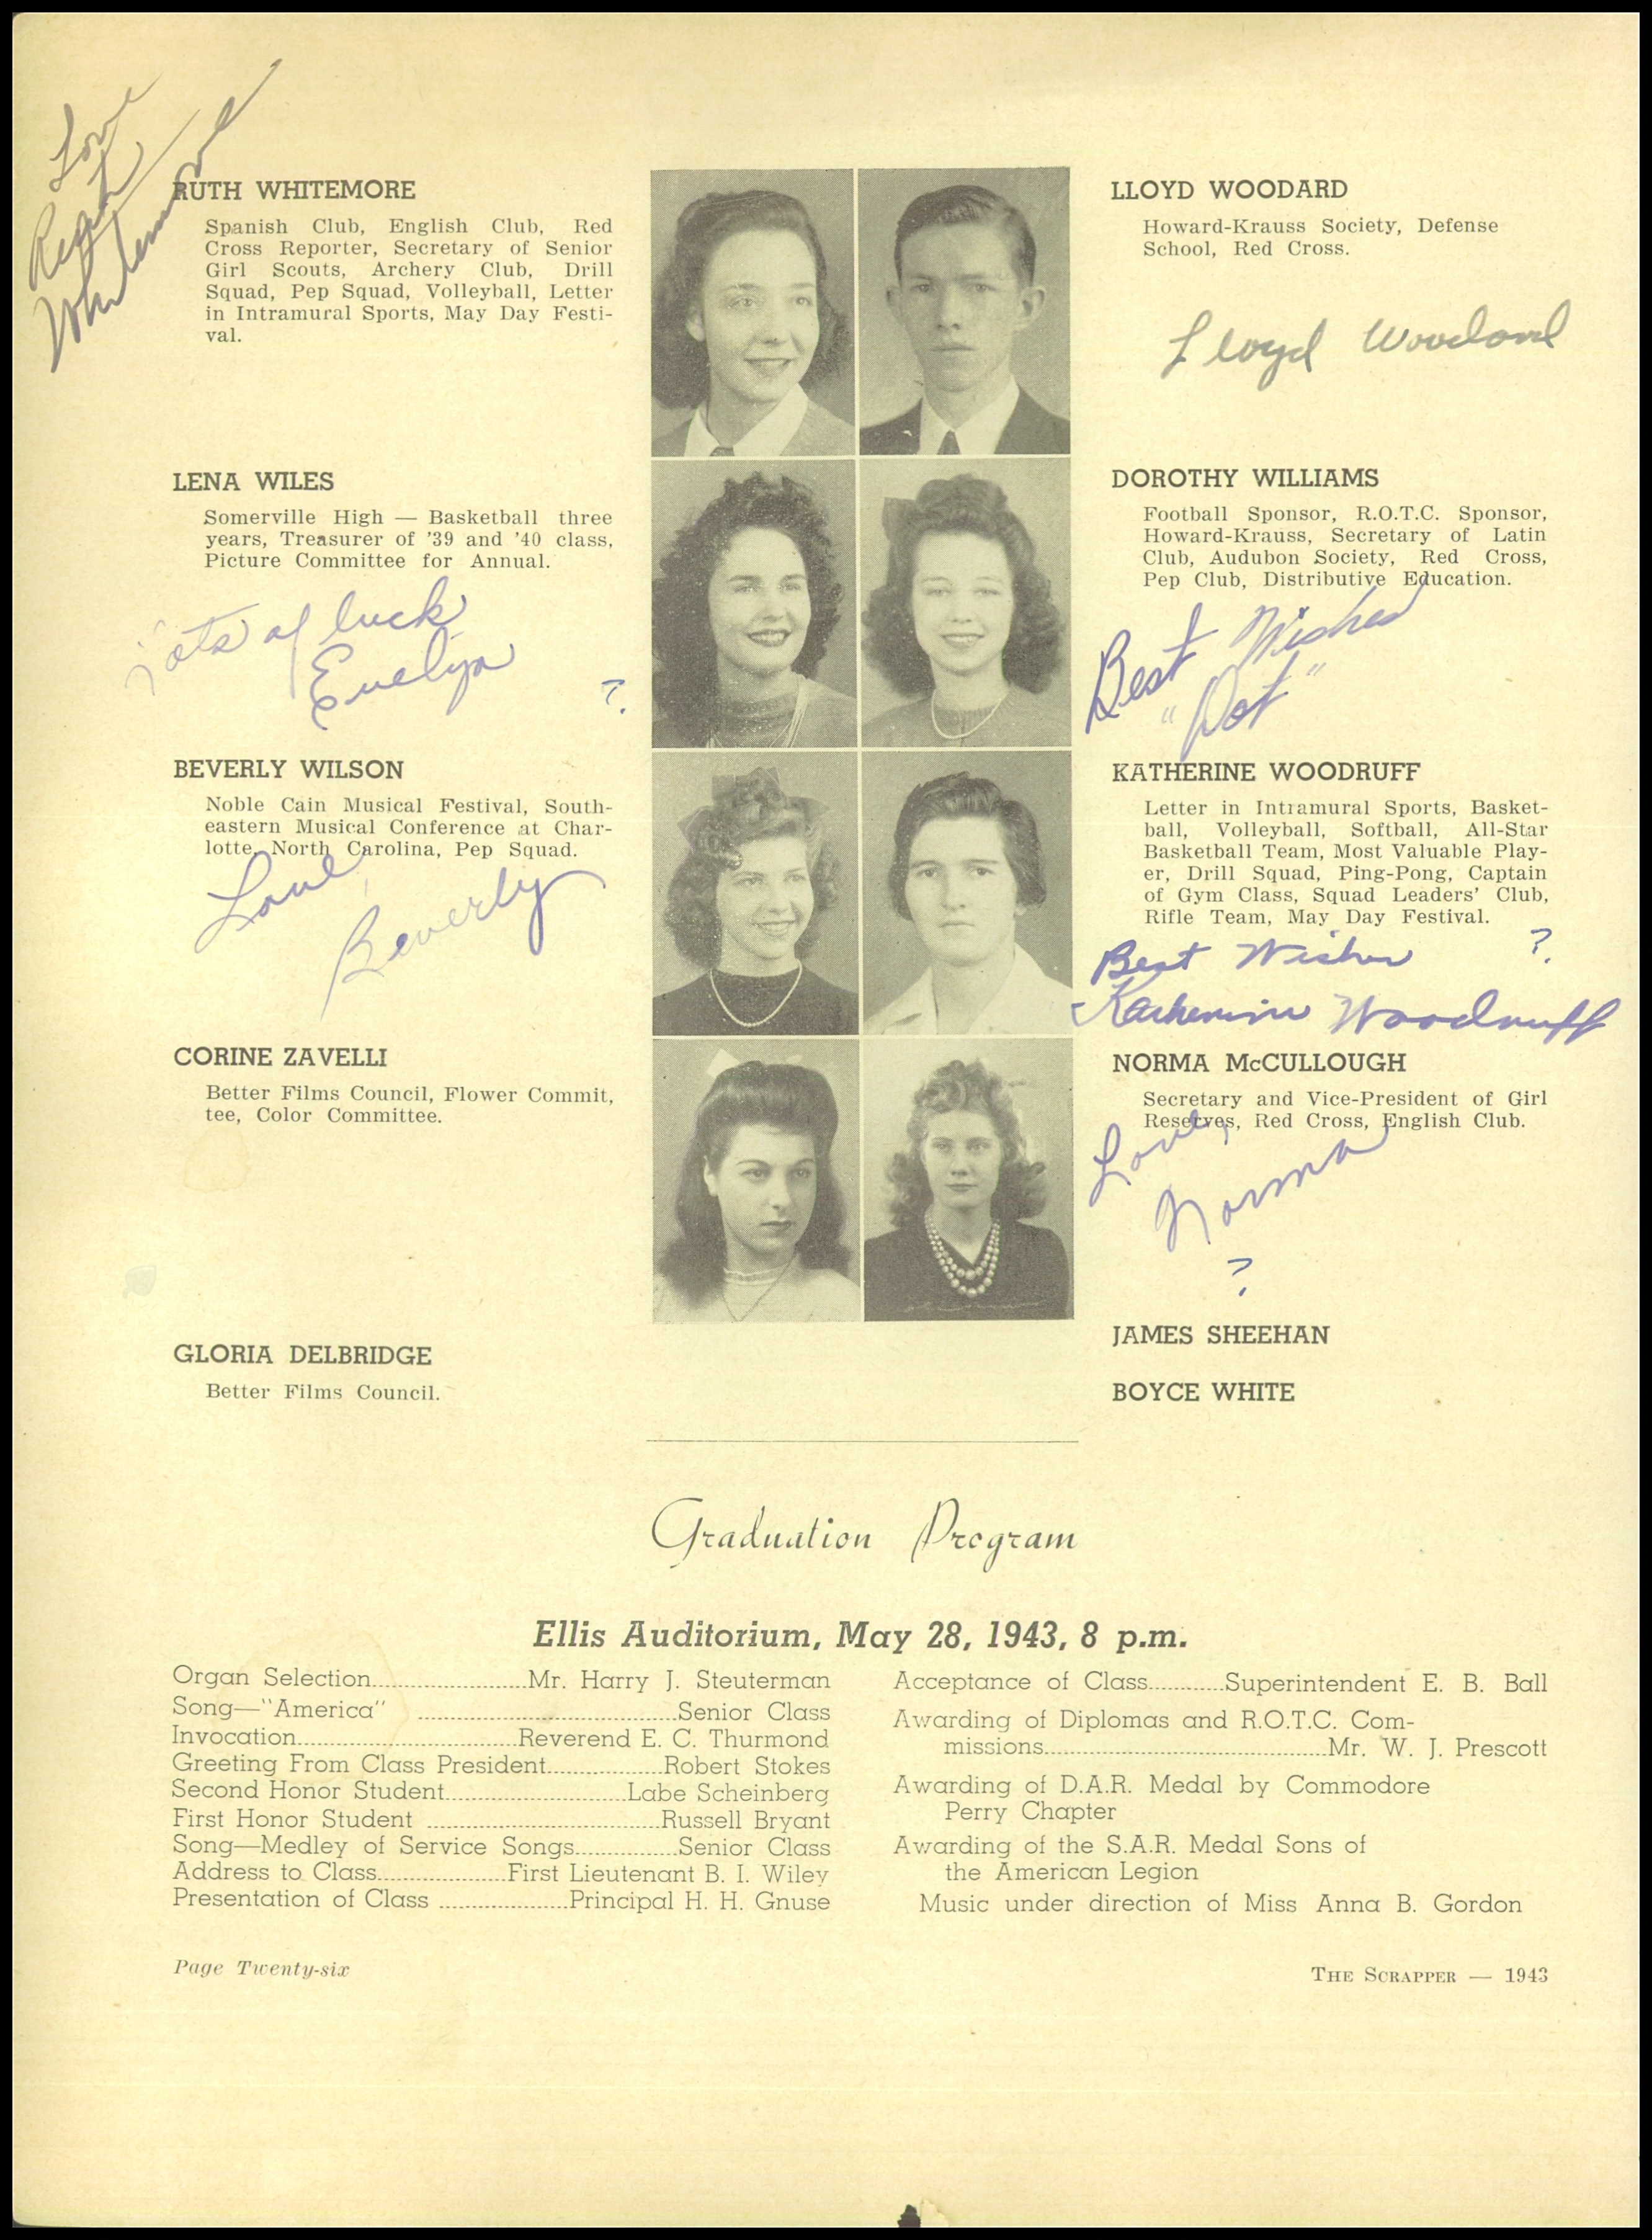 Love
Ruth
Whitemore
RUTH WHITEMORE
Spanish Club, English Club, Red
Cross Reporter, Secretary of Senior
Girl Scouts, Archery Club, Drill
Squad, Pep Squad, Volleyball, Letter
in Intramural Sports, May Day Festi-
val.
LENA WILES
Somerville High — Basketball three
years, Treasurer of '39 and '40 class,
Picture Committee for Annual.
Lots of luck
Evelyn
?
BEVERLY WILSON
Noble Cain Musical Festival, South-
eastern Musical Conference at Char-
lotte, North Carolina, Pep Squad.
Love,
Beverly
CORINE ZAVELLI
Better Films Council, Flower Commit,
tee, Color Committee.
GLORIA DELBRIDGE
Better Films Council.
LLOYD WOODARD
Howard-Krauss Society, Defense
School, Red Cross.
Lloyd Woodard
DOROTHY WILLIAMS
Football Sponsor, R.O.T.C. Sponsor,
Howard-Krauss, Secretary of Latin
Club, Audubon Society, Red Cross,
Pep Club, Distributive Education.
Best Wishes
"Dot"
KATHERINE WOODRUFF
Letter in Intramural Sports, Basket-
ball, Volleyball, Softball, All-Star
Basketball Team, Most Valuable Play-
er, Drill Squad, Ping-Pong, Captain
of Gym Class, Squad Leaders' Club,
Rifle Team, May Day Festival.
Best Wishes ?
Katherine Woodruff
NORMA McCULLOUGH
Secretary and Vice-President of Girl
Reserves, Red Cross, English Club.
Love,
Norma
?
JAMES SHEEHAN
BOYCE WHITE
Graduation Program
Ellis Auditorium, May 28, 1943, 8 p.m.
Organ Selection......................Mr. Harry J. Steuterman
Song—"America" ......................Senior Class
Invocation......................Reverend E. C. Thurmond
Greeting From Class President......................Robert Stokes
Second Honor Student......................Labe Scheinberg
First Honor Student ......................Russell Bryant
Song—Medley of Service Songs......................Senior Class
Address to Class......................First Lieutenant B. I. Wiley
Presentation of Class ......................Principal H. H. Gnuse
Acceptance of Class............Superintendent E. B. Ball
Awarding of Diplomas and R.O.T.C. Com-
missions......................Mr. W. J. Prescott
Awarding of D.A.R. Medal by Commodore
Perry Chapter
Awarding of the S.A.R. Medal Sons of
the American Legion
Music under direction of Miss Anna B. Gordon
Page Twenty-six
THE SCRAPPER — 1943